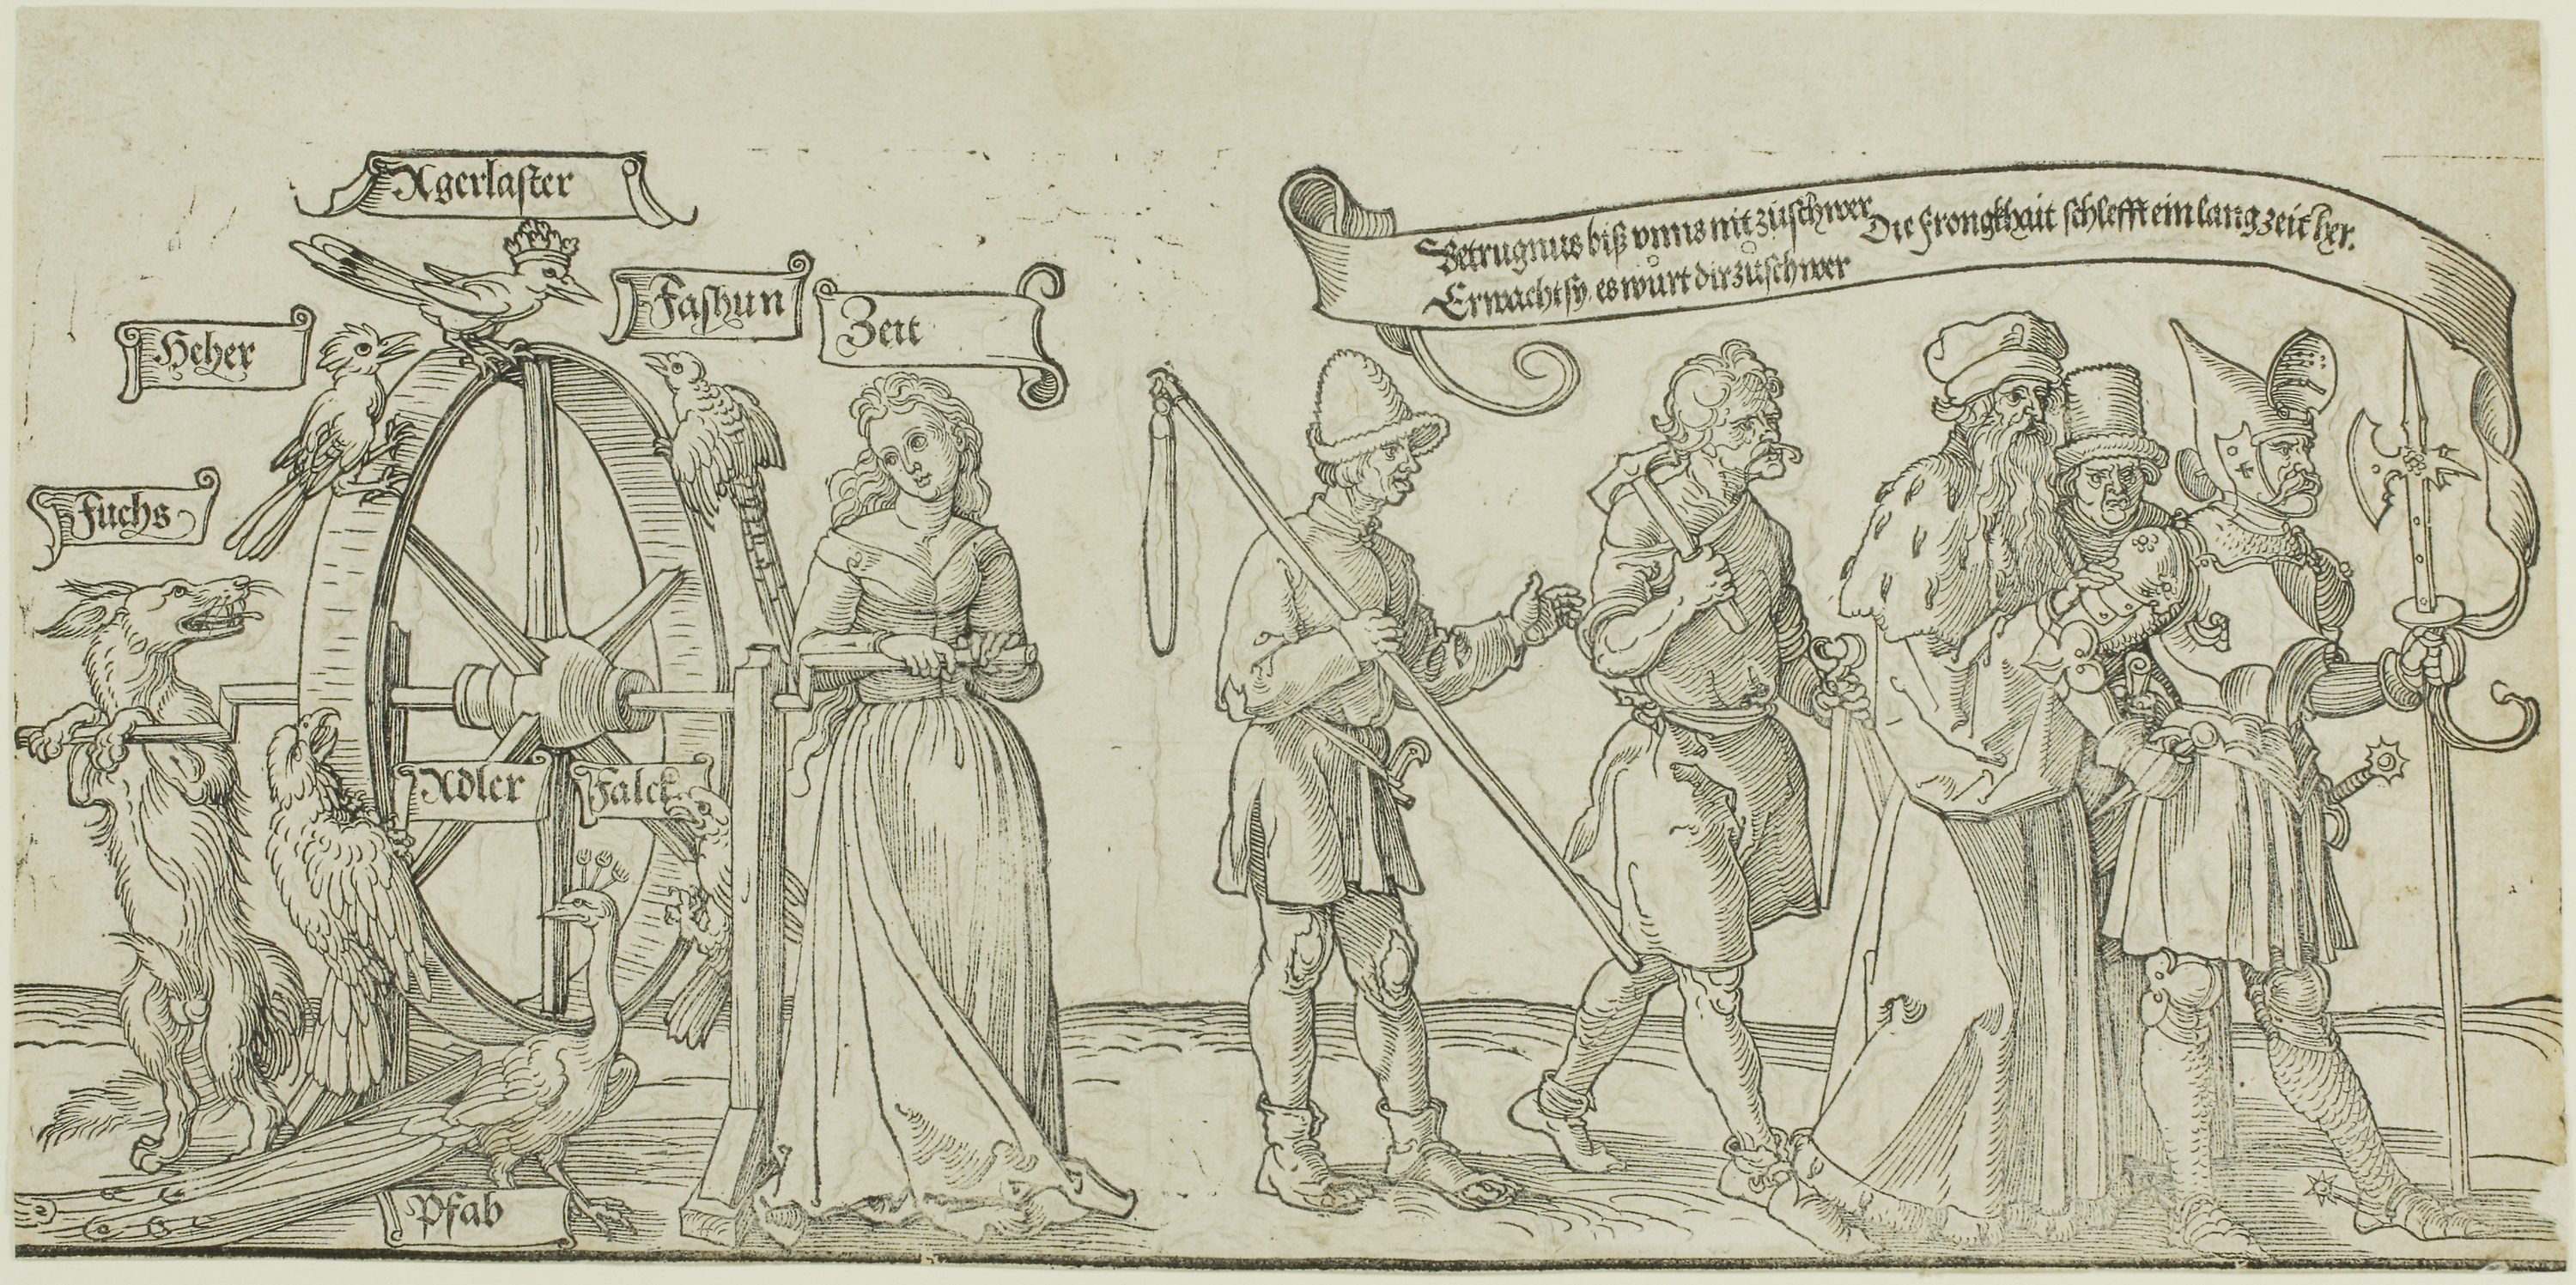 Agerlaster
Fashun
Zeit
Heher
Fuchs
Adler
Falck
Pfab
Betrugnus biß vnns nit zůschwer
Die Frongkhait schlefft ein lang zeit her.
Erwacht sy es wůrt dir zůschwer